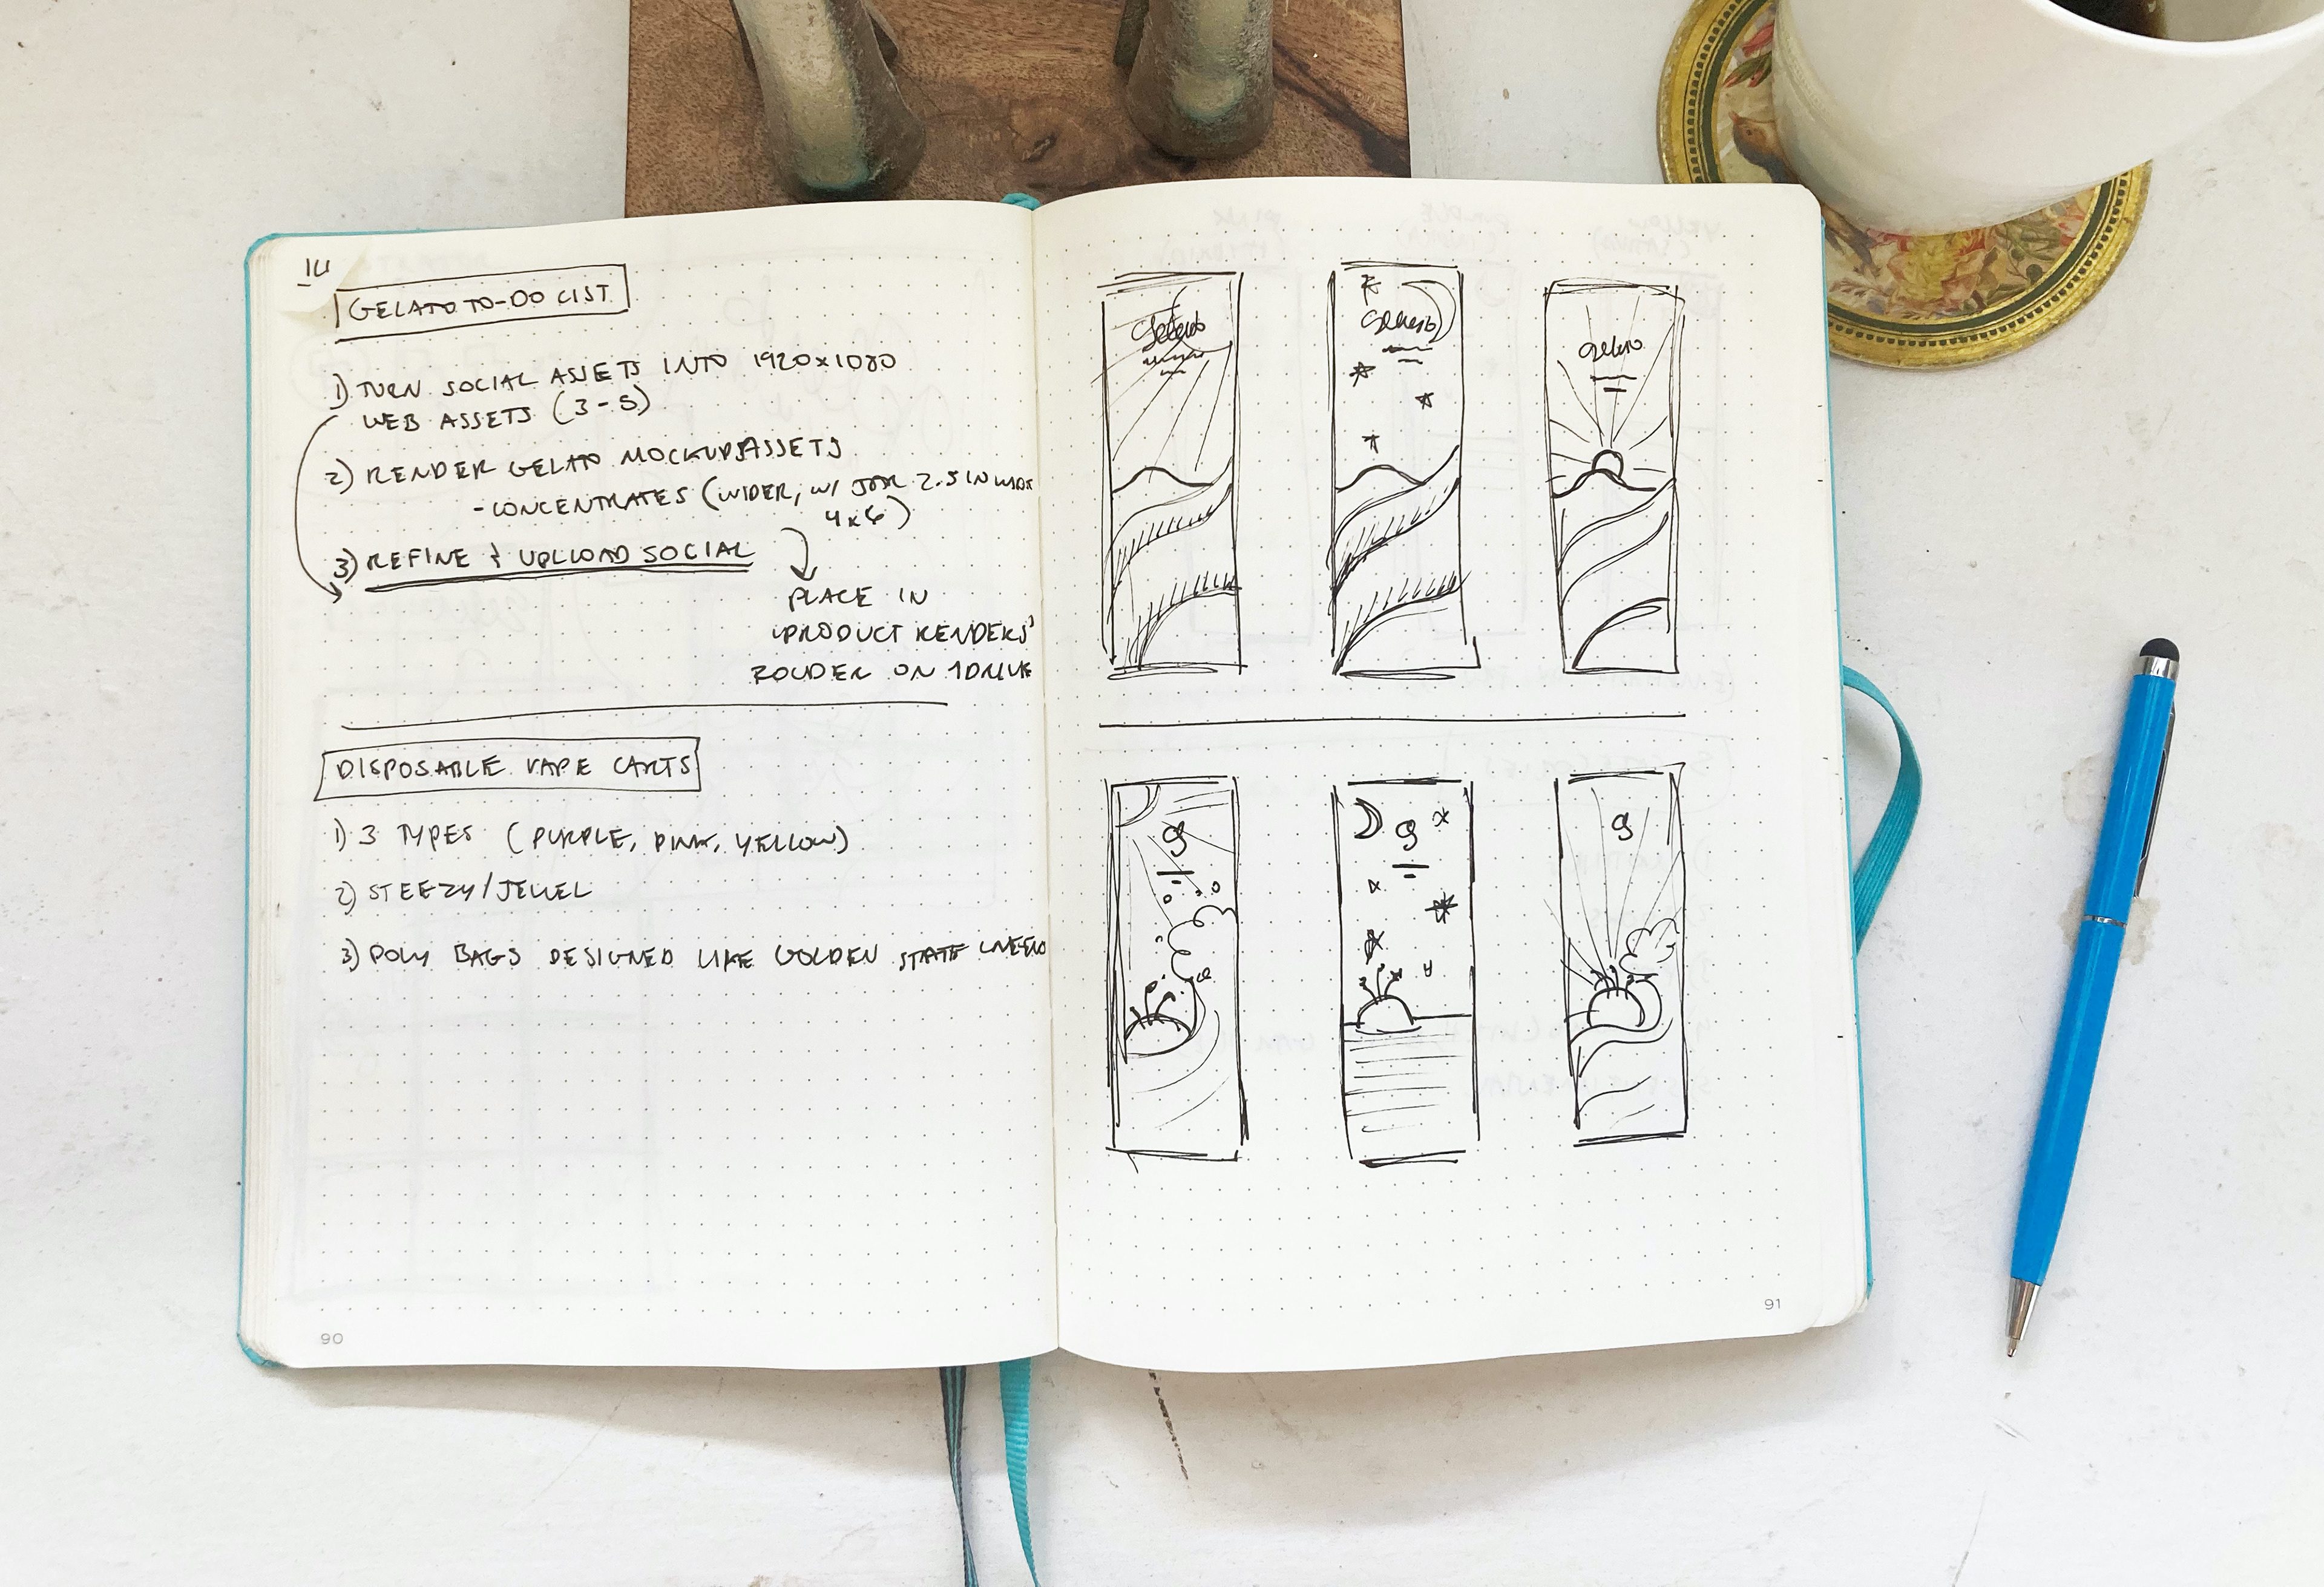 GELATO TO-DO LIST
1) TURN SOCIAL ASSETS INTO 1920x1080
WEB ASSETS (3-5)
2) RENDER GELATO MOCKUP ASSETS
- CONCENTRATES (WIDER, W/ JAR 2.5 IN WIDE
4x6)
3) REFINE & UPLOAD SOCIAL
PLACE IN
'PRODUCT RENDERS'
FOLDER ON 1DRIVE
DISPOSABLE VAPE CARTS
1) 3 TYPES (PURPLE, PINK, YELLOW)
2) STEEZY/JEWEL
3) POLY BAGS DESIGNED LIKE GOLDEN STATE
90
Gelato
Gelato
gelato
g
g
g
91